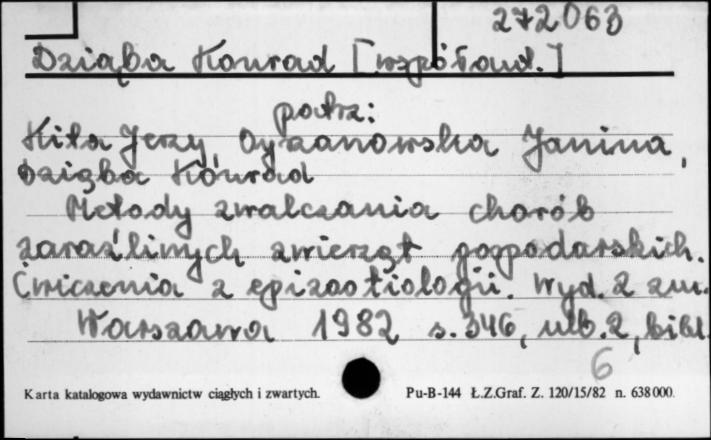 272063
Dziąba Konrad [współaut.]
patrz:
Kita Jerzy, Oyrzanowska Janina,
Dziąba Konrad
Metody zwalczania chorób
zaraźliwych zwierząt gospodarskich.
Ćwiczenia z epizootiologii. Wyd. 2 zm.
Warszawa 1982 s. 346, nlb. 2, bibl.
6
Karta katalogowa wydawnictw ciągłych i zwartych. Pu-B-144 Ł.Z.Graf. Z. 120/15/82 n. 638000.